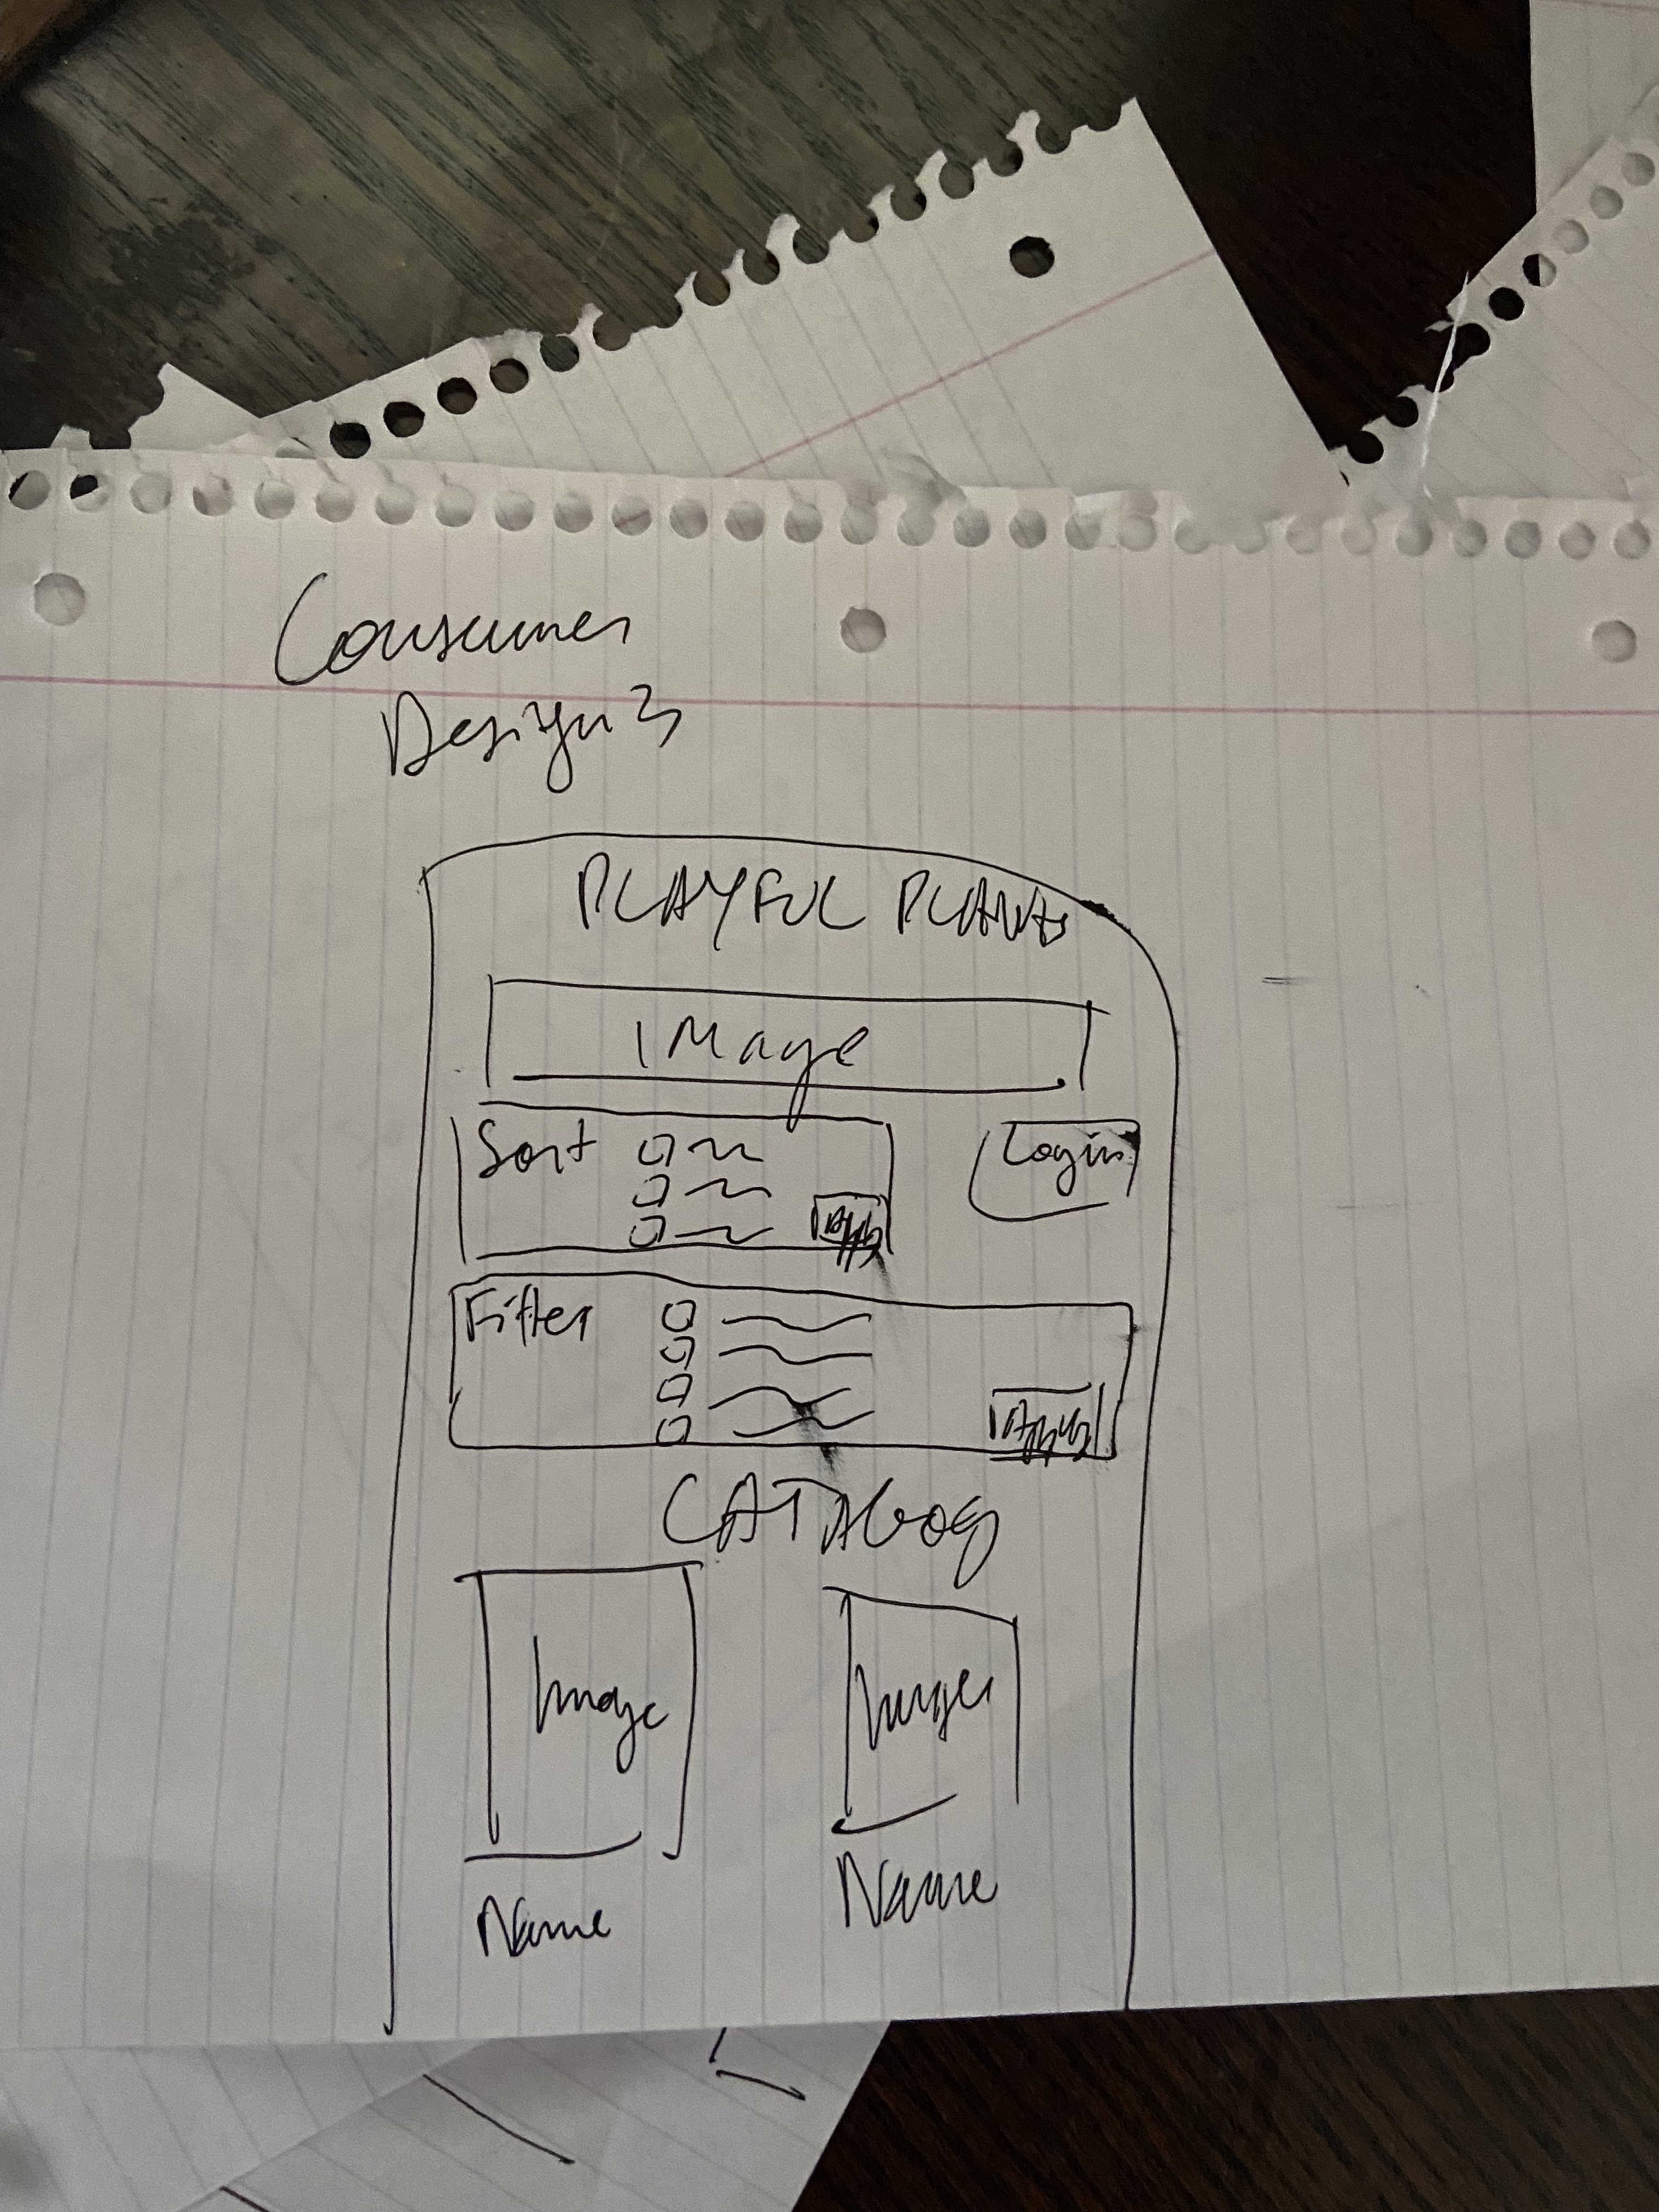 Consumer
Design 3
PLAYFUL PLANTS
IMage
Sort
Login
Apply
Filter
Apply
CATAlog
Image
Image
Name
Name